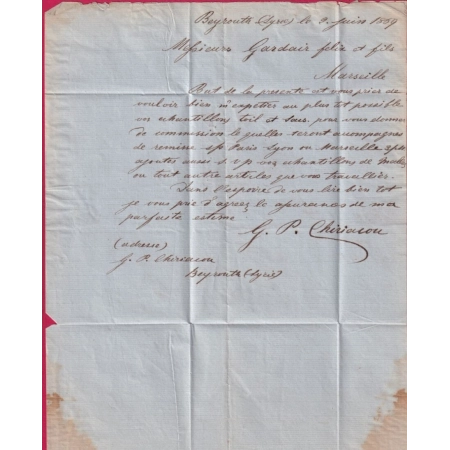 Beyrouth (Syrie) le 9 Juin 1859
Messieurs Gardair felix et fils
Marseille
But de la presente est vous prier de
vouloir bien m'expetier au plus tot possible
vos echantillons toil et pour vous donner
de commission le quelles seront accompagnes
de remise s/ Paris Lyon ou Marseille
ajoutes aussi s v p vos echantillons de
ou tout autre articles que vous travaillier.
Dans l'espoire de vous lire bien tot
je vous prie d'agreez le apurances de ma
parfaite estime
G. P. Chiriacou
(adresse)
G. P. Chiriacou
Beyrouth (Syrie)